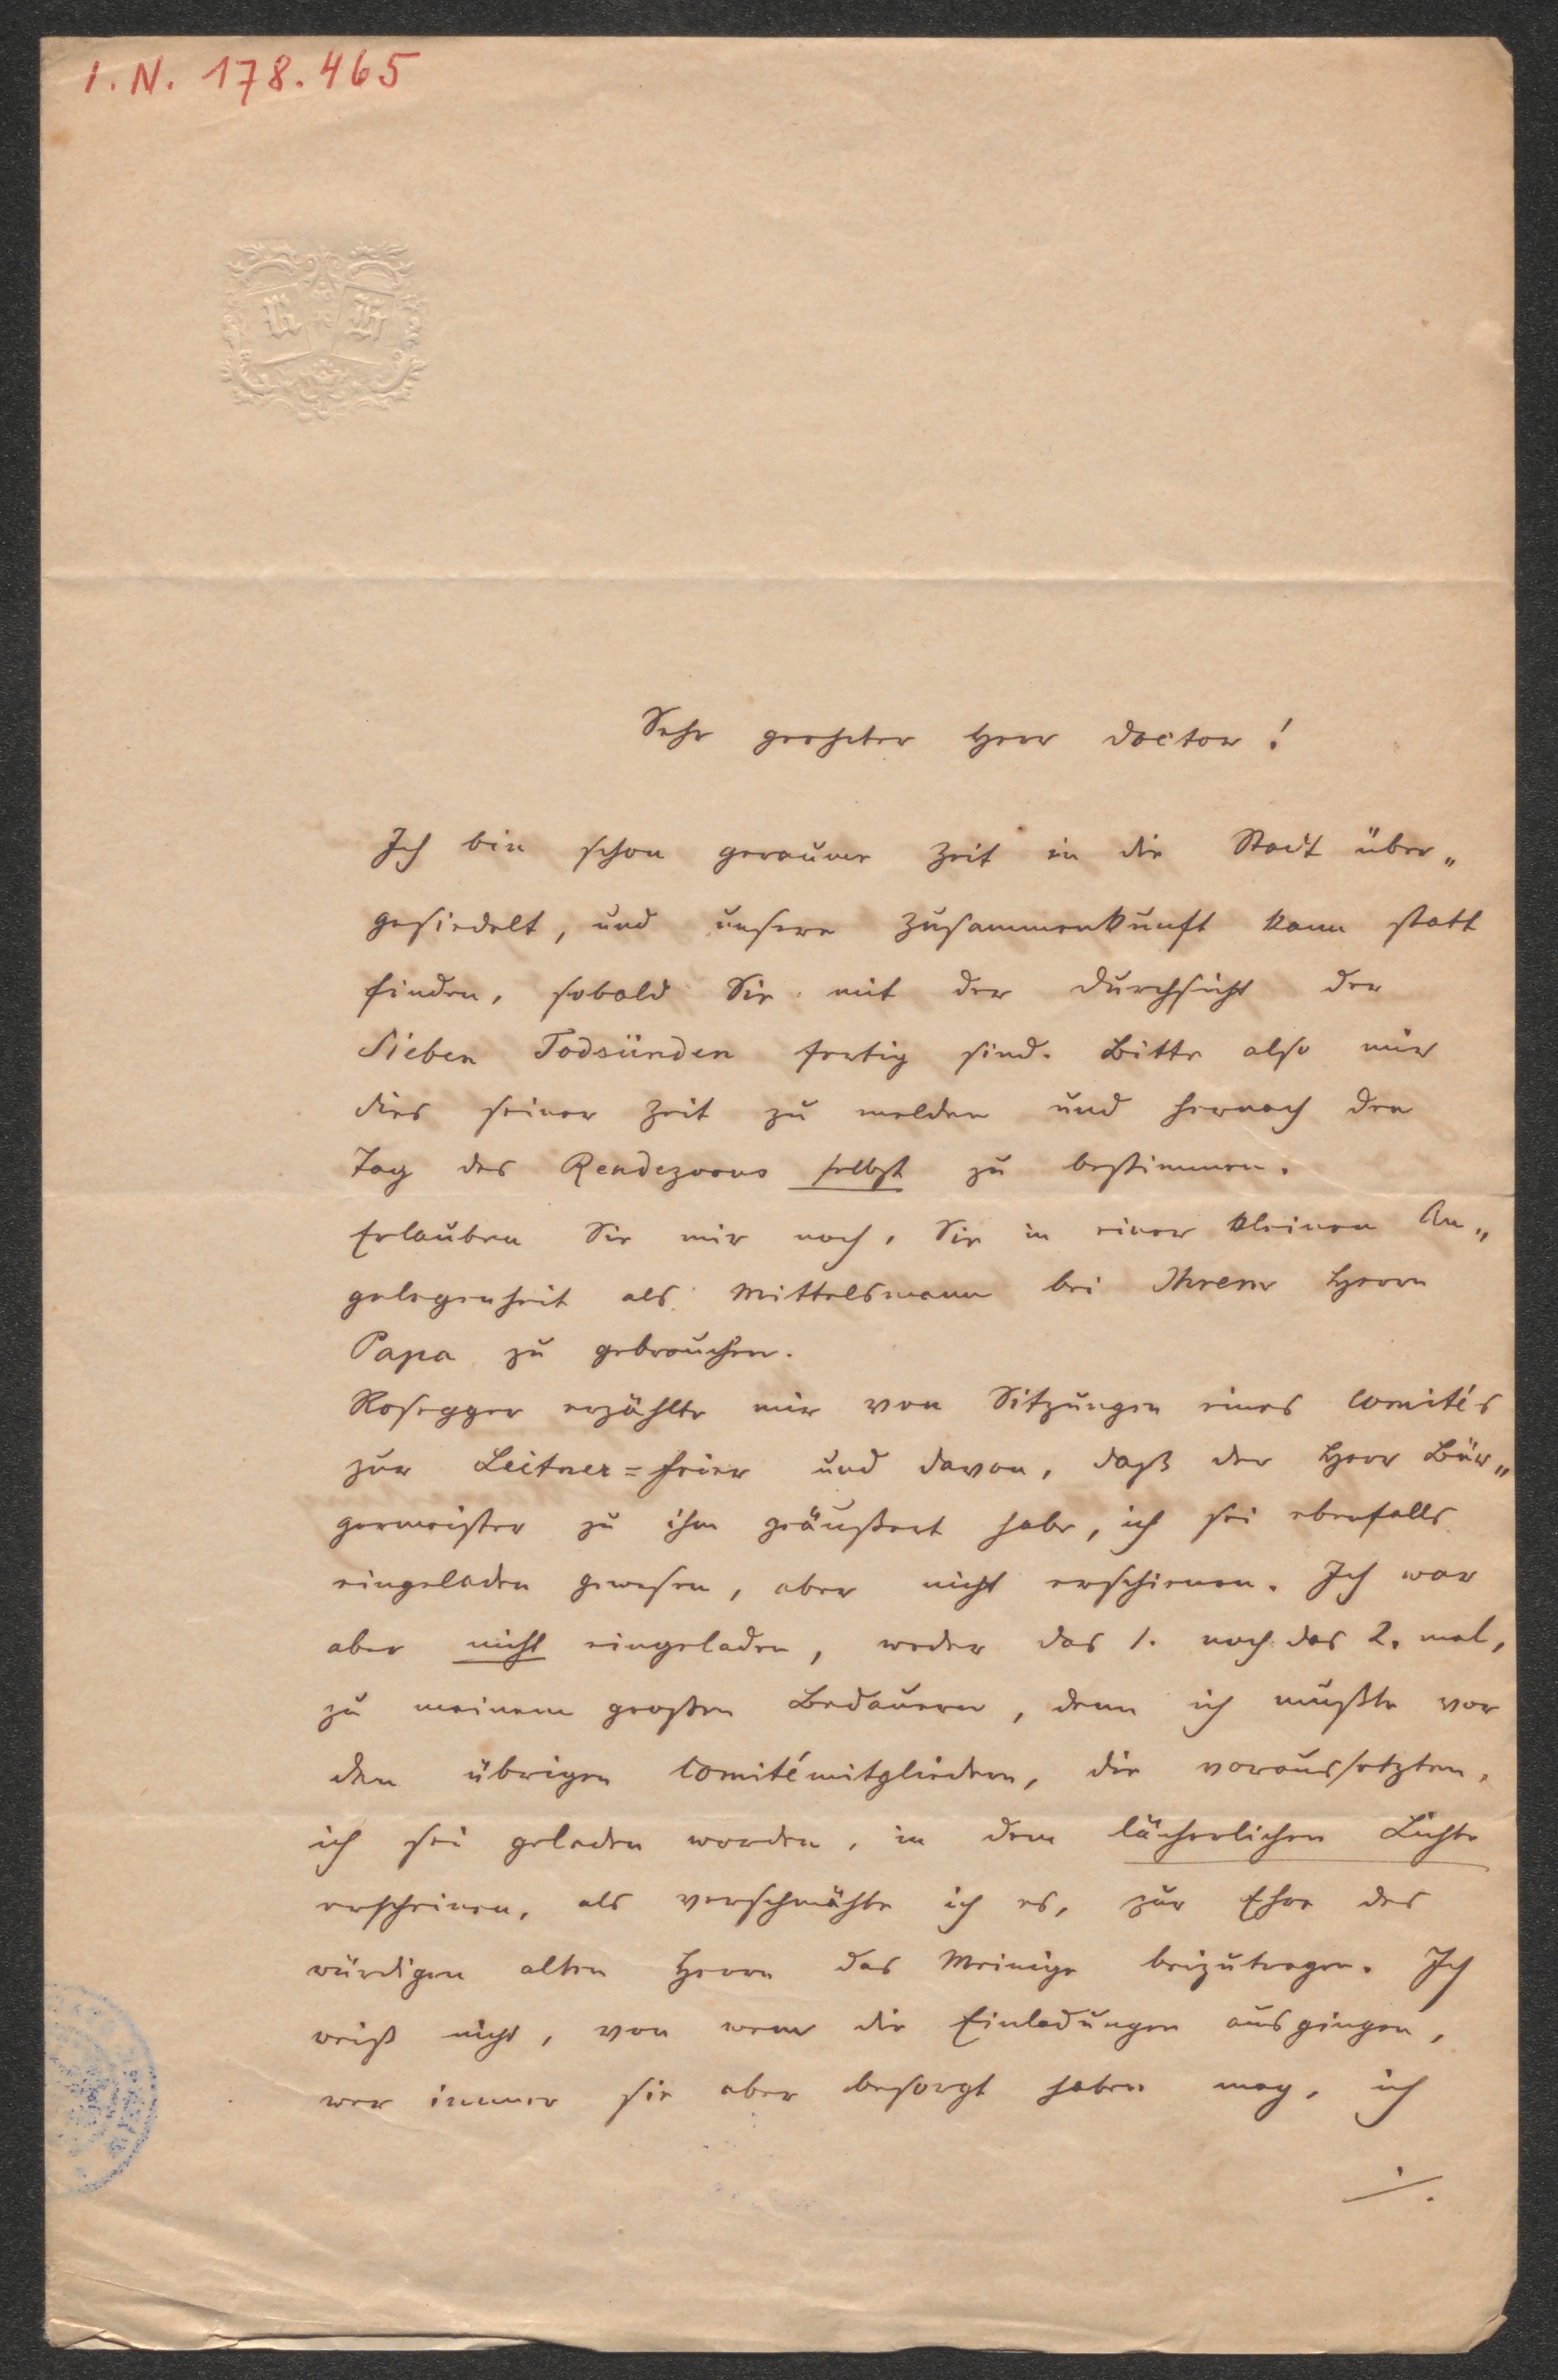 I. N. 178.465
R H
Sehr geehrter Herr Doctor!
Ich bin schon geraume Zeit in die Stadt über„
gesiedelt, und unsere Zusammenkunft kann statt
finden, sobald Sie mit der Durchsicht der
Sieben Todsünden fertig sind. Bitte also mir
dies seiner Zeit zu melden und hernach den
Tag des Rendezvous selbst zu bestimmen.
Erlauben Sie mir noch, Sie in einer kleinen An„
gelegenheit als Mittelsmann bei Ihrem Herrn
Papa zu gebrauchen.
Rosegger erzählte mir von Sitzungen eines Comités
zur Leitner=Feier und davon, daß der Herr Bür„
germeister zu ihm geäußert habe, ich sei ebenfalls
eingeladen gewesen, aber nicht erschienen. Ich war
aber nicht eingeladen, weder das 1. noch das 2. mal,
zu meinem großen Bedauern, denn ich mußte vor
den übrigen Comitémitgliedern, die voraussetzten,
ich sei geladen worden, in dem lächerlichen Lichte
erscheinen, als verschmähte ich es, zur Ehre des
würdigen alten Herrn das Meinige beizutragen. Ich
weiß nicht, von wem die Einladungen ausgingen,
wer immer sie aber besorgt haben mag, ich
./.